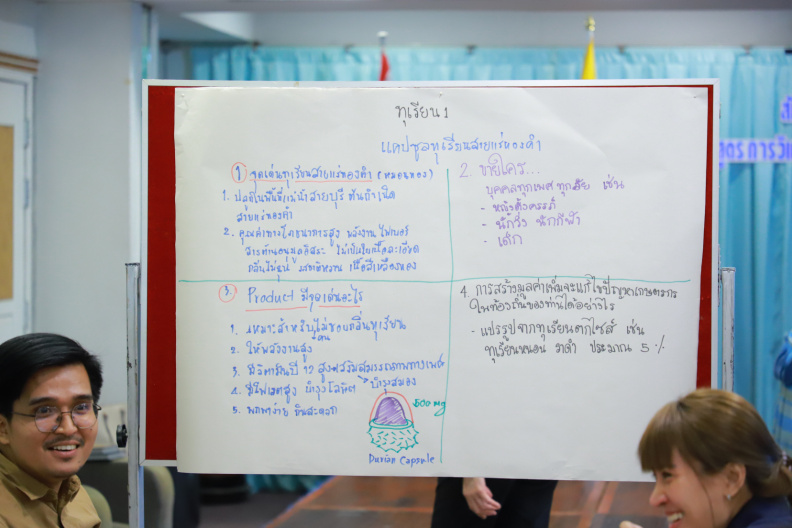 ทุเรียน 1
แคปซูลทุเรียนสายแร่ทองคำ
1 จุดเด่นทุเรียนสายแร่ทองคำ (หมอนทอง)
1. ปลูกในพื้นที่แม่น้ำสายบุรี ต้นกำเนิด
สายแร่ทองคำ
2. คุณค่าทางโภชนาการสูง พลังงาน ไฟเบอร์
สารต้านอนุมูลอิสระ ไม่เป็นใยเนื้อละเอียด
กลิ่นไม่ฉุน รสชาติหวาน เนื้อสีเหลืองทอง
2. ขายใคร...
บุคคลทุกเพศ ทุกวัย เช่น
- หญิงตั้งครรภ์
- นักวิ่ง นักกีฬา
- เด็ก
3. Product มีจุดเด่นอะไร
1. เหมาะสำหรับคนไม่ชอบกลิ่นทุเรียน
2. ให้พลังงานสูง
3. มีวิตามินบี 12 สูง ส่งเสริมสมรรถภาพทางเพศ
บำรุงสมอง
4. มีโฟเลตสูง บำรุงโลหิต
5. พกพาง่าย กินสะดวก
500 mg
Durian Capsule
4. การสร้างมูลค่าเพิ่มจะแก้ไขปัญหาเกษตรกร
ในท้องถิ่นของท่านได้อย่างไร
- แปรรูปจากทุเรียนตกไซส์ เช่น
ทุเรียนหนอน ราดำ ประมาณ 5 %